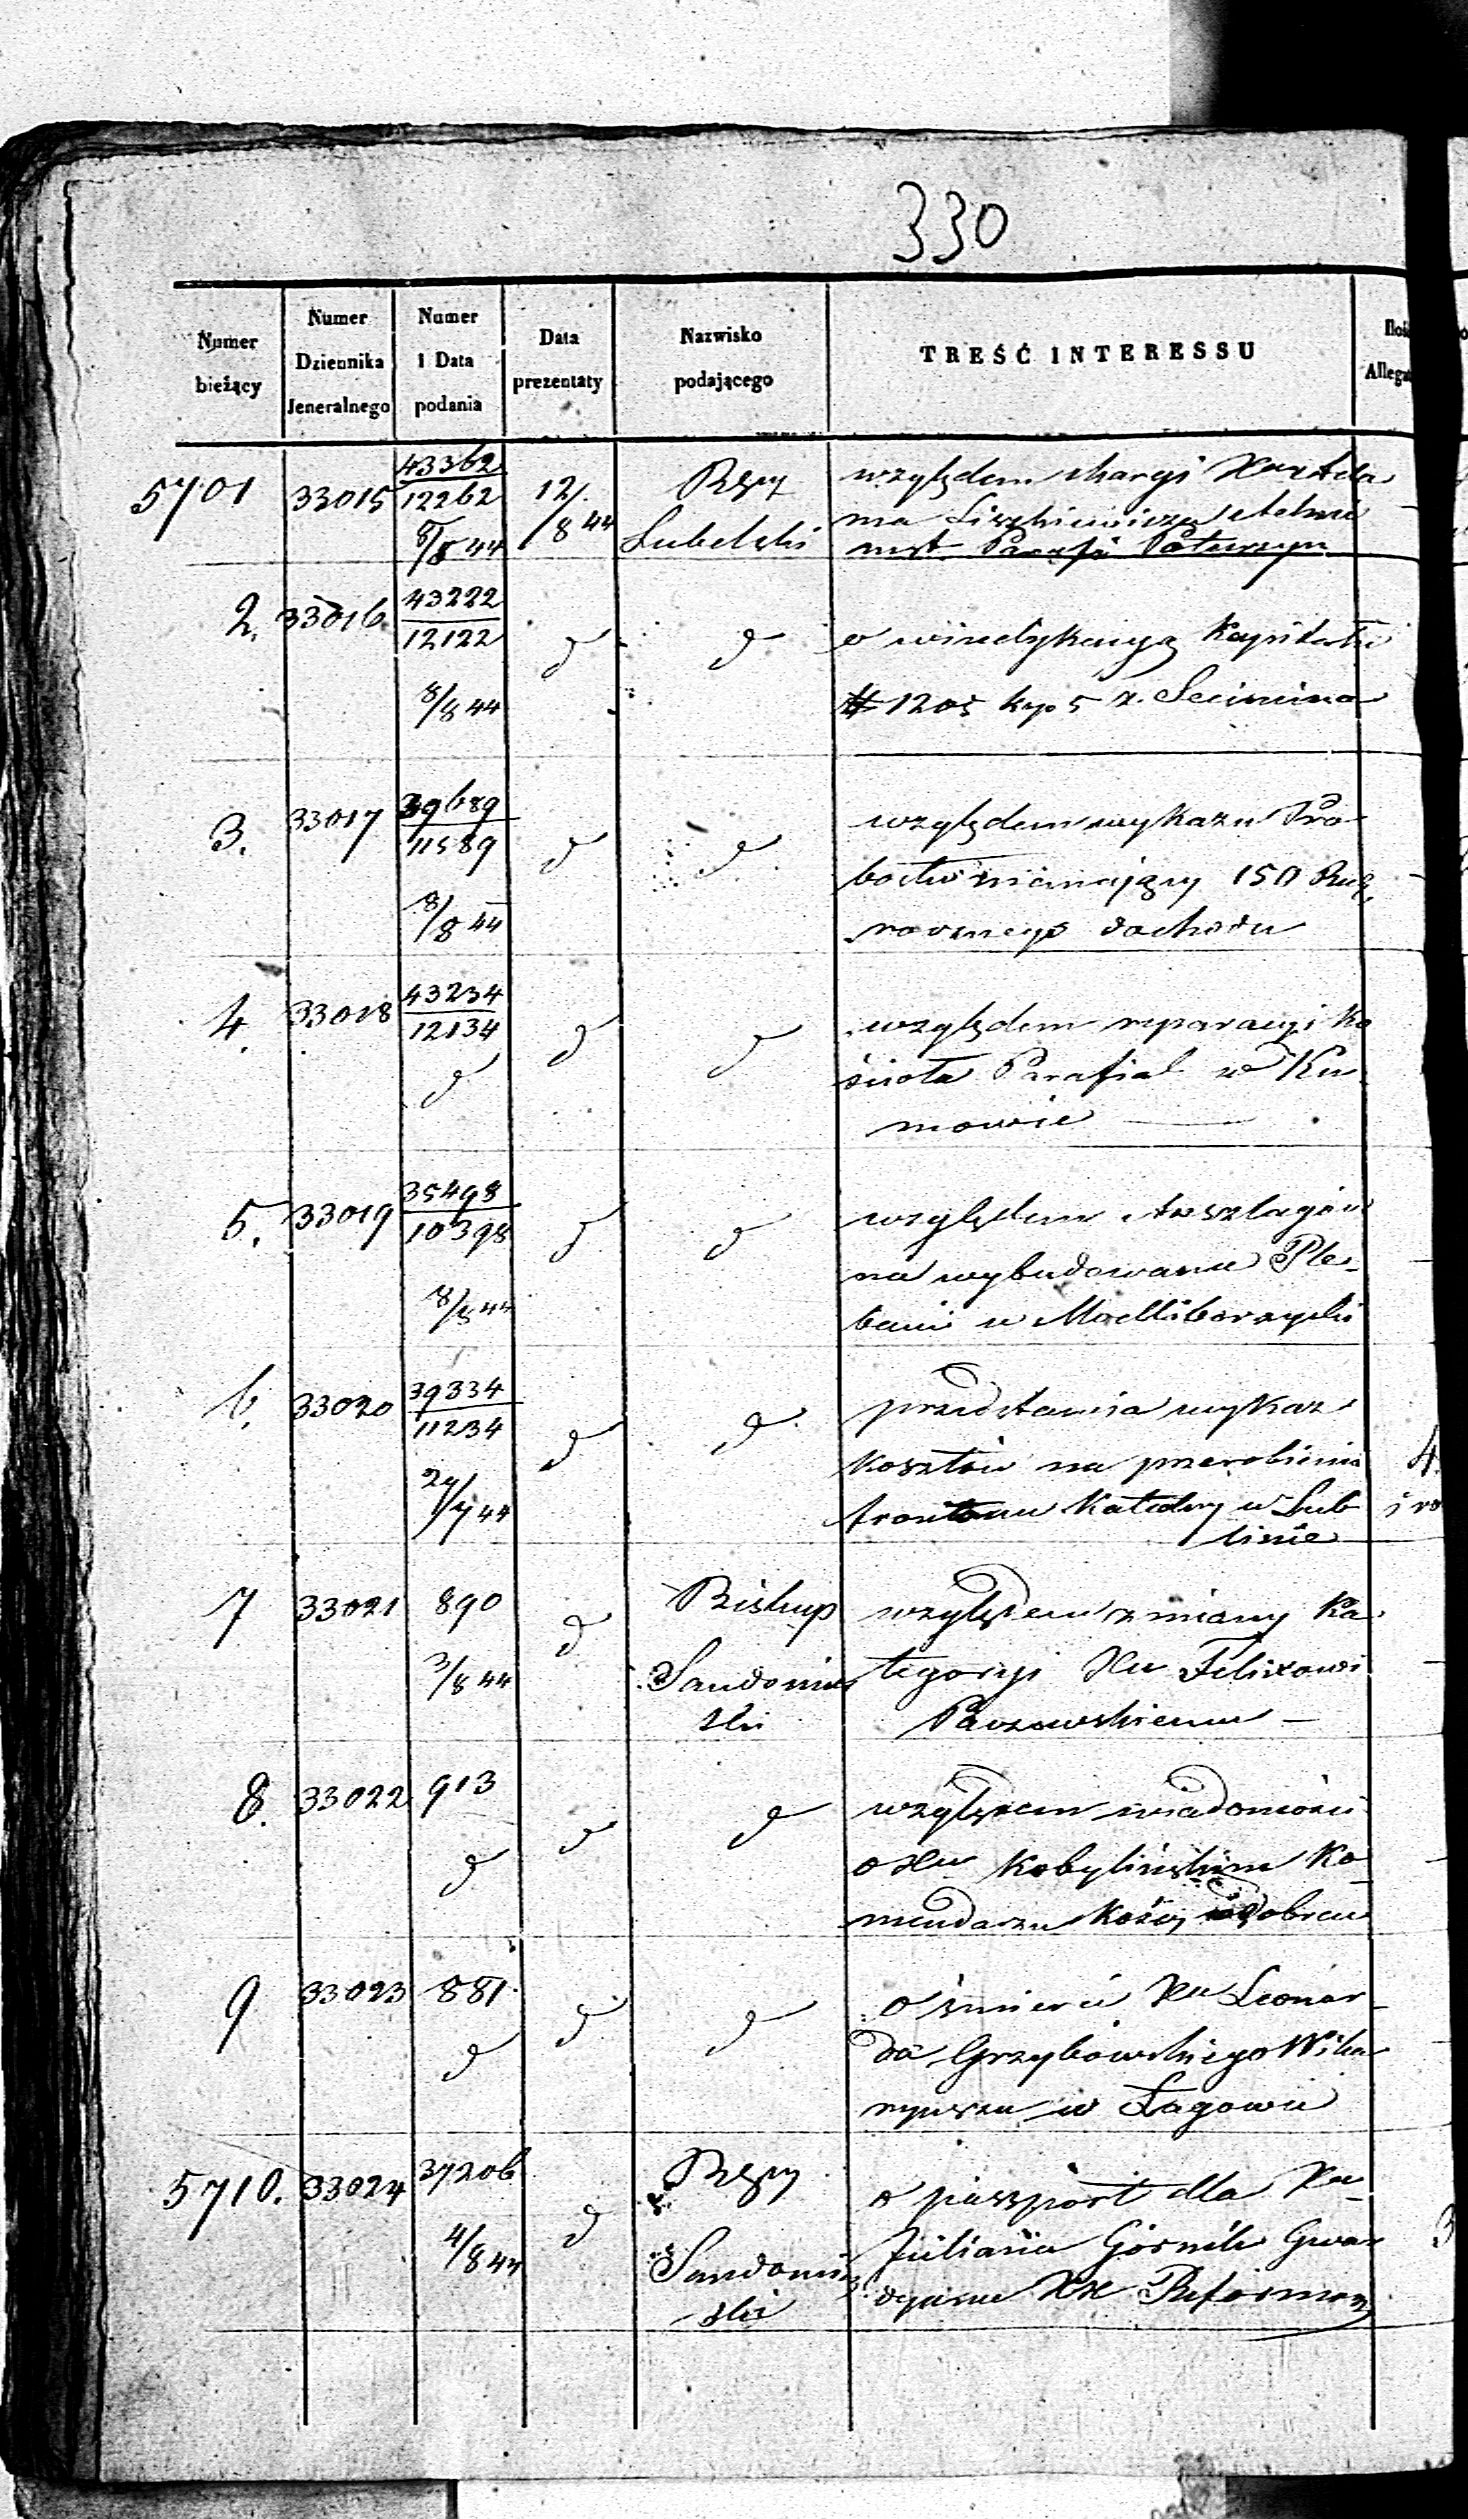 330
Numer bieżący | Numer Dziennika Jeneralnego | Numer i Data podania | Data prezentaty | Nazwisko podającego | TREŚĆ INTERESSU | Allega
5701 33015 43362/12262 8/8 44 12/8 44 Rząd Lubelski
względem skargi Xa Ada
ma
Parafii
2. 33016 43222/12122 8/8 44 d d
o windykacyą Kapitału
# 1205 kop 5 z
3. 33017 39689/11589 8/8 44 d d
względem wykazu Pro
bostw niemający 150 Rub.
rocznego dochodu
4. 33018 43234/12134 d d d
względem reparacyi Ko
ścioła Parafial w Ku
mowie
5. 33019 35498/10398 8/8 44 d d
względem Anszlagów
na wybudowanie Ple-
banii w Modliborzycki
6. 33020 39334/11234 29/7 44 d d
przedstawia wykaz
kosztów na przerobienie 4.
frontonu Katedry w Lub
linie
7 33021 890 3/8 44 d Biskup Sandomier ski
względem zmiany Ka
tegoryi Xu Felixowi
Paczowskiemu
8. 33022 913 d d d
względem wiadomości
o Xu Kobylińskim Ko-
mendarzu
9 33023 881 d d d
o śmierci Xa Leonar-
da Grzybowskiego Wika
ryusza w Łagowie
5710. 33024 37206 4/8 44 d Rząd Sandomier ski
o passport dla Xa
Juliana Górnik Gwar 3
dyana XX Reformaz